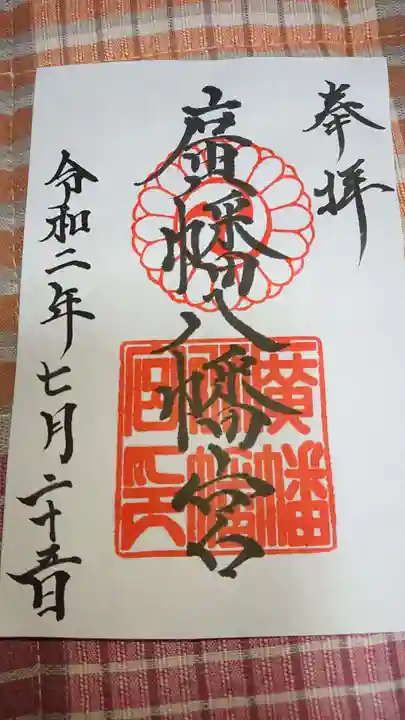 奉拝
廣幡八幡宮
廣幡
八幡
宮印
令和二年七月二十五日